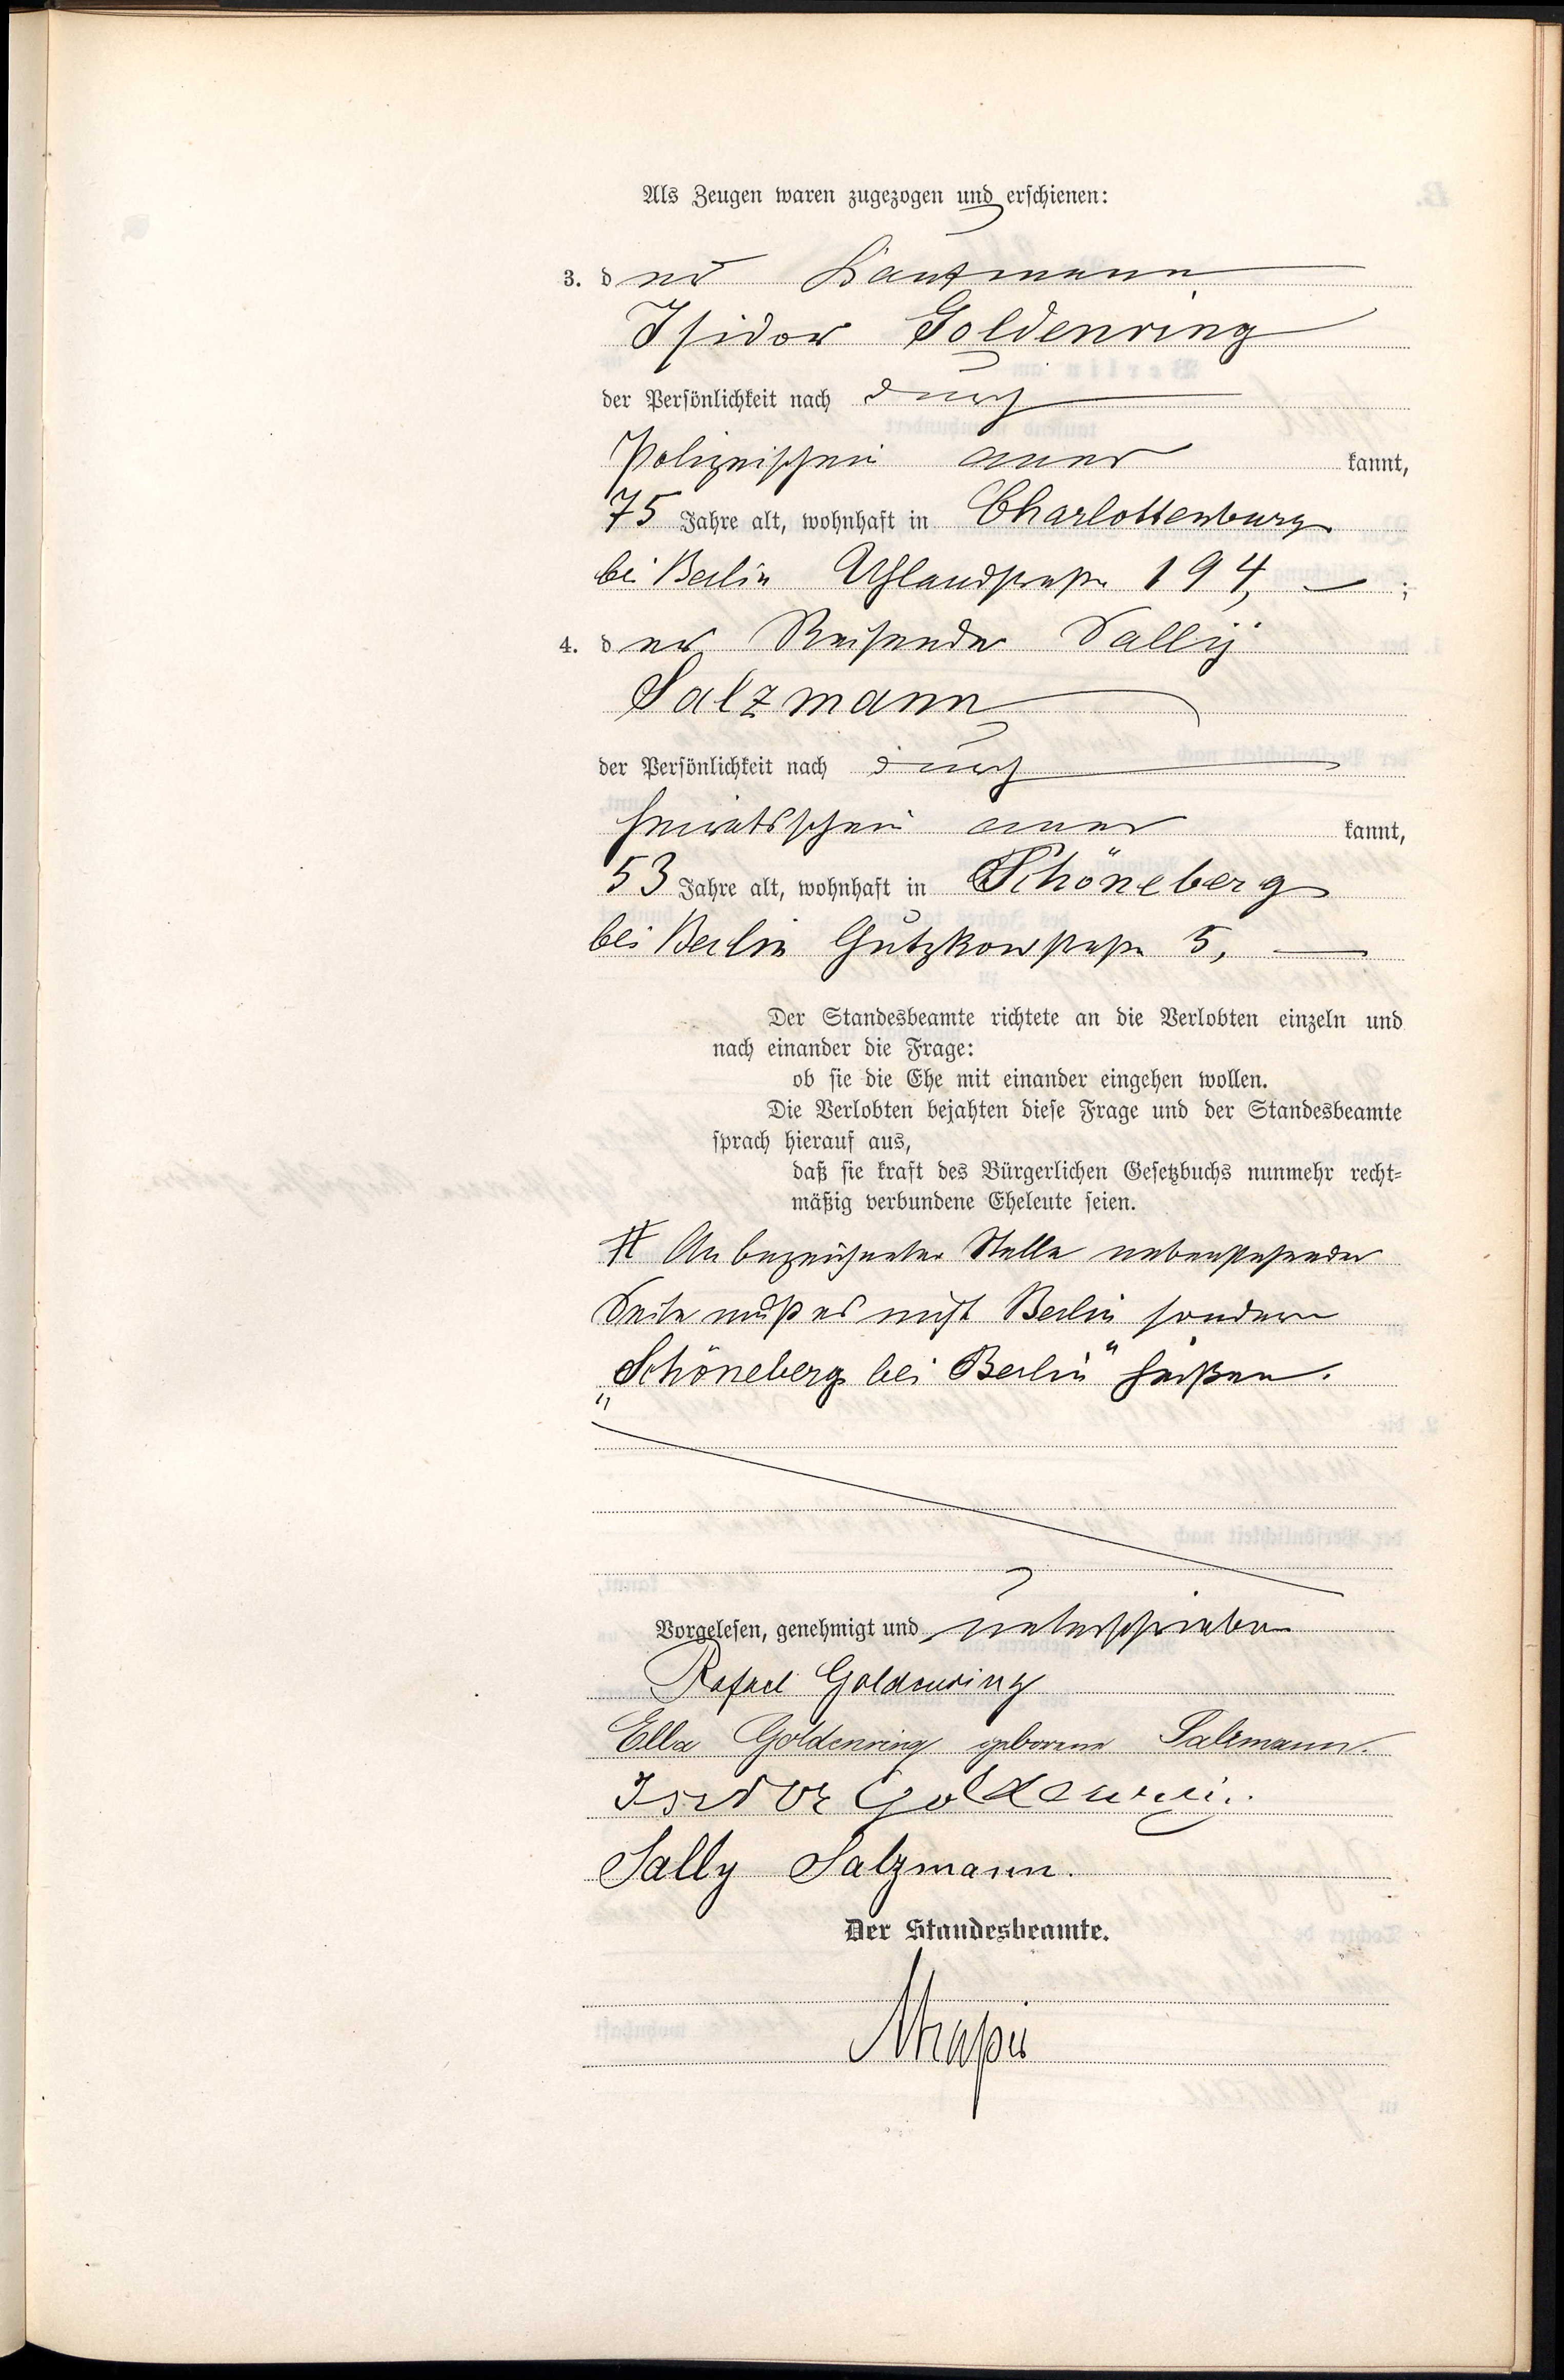 Als Zeugen waren zugezogen und erschienen:
3. der Kaufmann
Isidor Goldenring
der Persönlichkeit nach durch
Polizeischein aner kannt,
75 Jahre alt, wohnhaft in Charlottenburg
bei Berlin Uhlandstraße 194, ;
4. der Reisende Sally
Salzmann
der Persönlichkeit nach durch
Heiratsschein aner kannt,
53 Jahre alt, wohnhaft in Schöneberg
bei Berlin Gutzkowstraße 5,
Der Standesbeamte richtete an die Verlobten einzeln und
nach einander die Frage:
ob sie die Ehe mit einander eingehen wollen.
Die Verlobten bejahten diese Frage und der Standesbeamte
sprach hierauf aus,
daß sie kraft des Bürgerlichen Gesetzbuchs nunmehr recht=
mäßig verbundene Eheleute seien.
# An bezeichneter Stelle nebenstehender
Seite muß es nicht Berlin sondern
„Schöneberg bei Berlin“ heißen.
Vorgelesen, genehmigt und unterschrieben
Rafael Goldenring
Ella Goldenring geborene Salzmann.
Isidor Goldenring.
Sally Salzmann.
Der Standesbeamte.